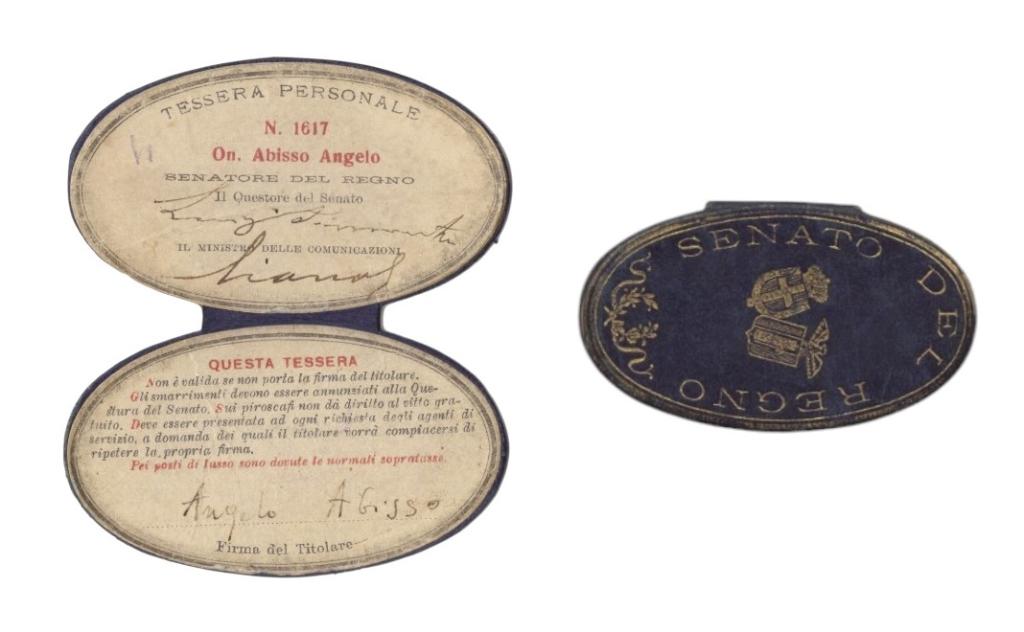 TESSERA PERSONALE
N. 1617
On. Abisso Angelo
SENATORE DEL REGNO
Il Questore del Senato
IL MINISTRO DELLE COMUNICAZIONI
QUESTA TESSERA
Non è valida se non porta la firma del titolare.
Gli smarrimenti devono essere annunziati alla Que-
stura del Senato. Sui piroscafi non dà diritto al vitto gra-
tuito. Deve essere presentata ad ogni richiesta degli agenti di
servizio, a domanda dei quali il titolare vorrà compiacersi di
ripetere la propria firma.
Pei posti di lusso sono dovute le normali sopratasse.
Angelo Abisso
Firma del Titolare
SENATO DEL REGNO